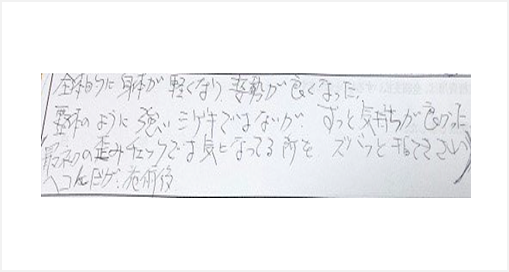 全体的に身体が軽くなり、姿勢が良くなった。
整体のように強いシゲキではないが、ずっと気持ちが良かった
最初の歪みチェックでは気になってる所をズバッと指てきされ
ヘコんだが、施術後